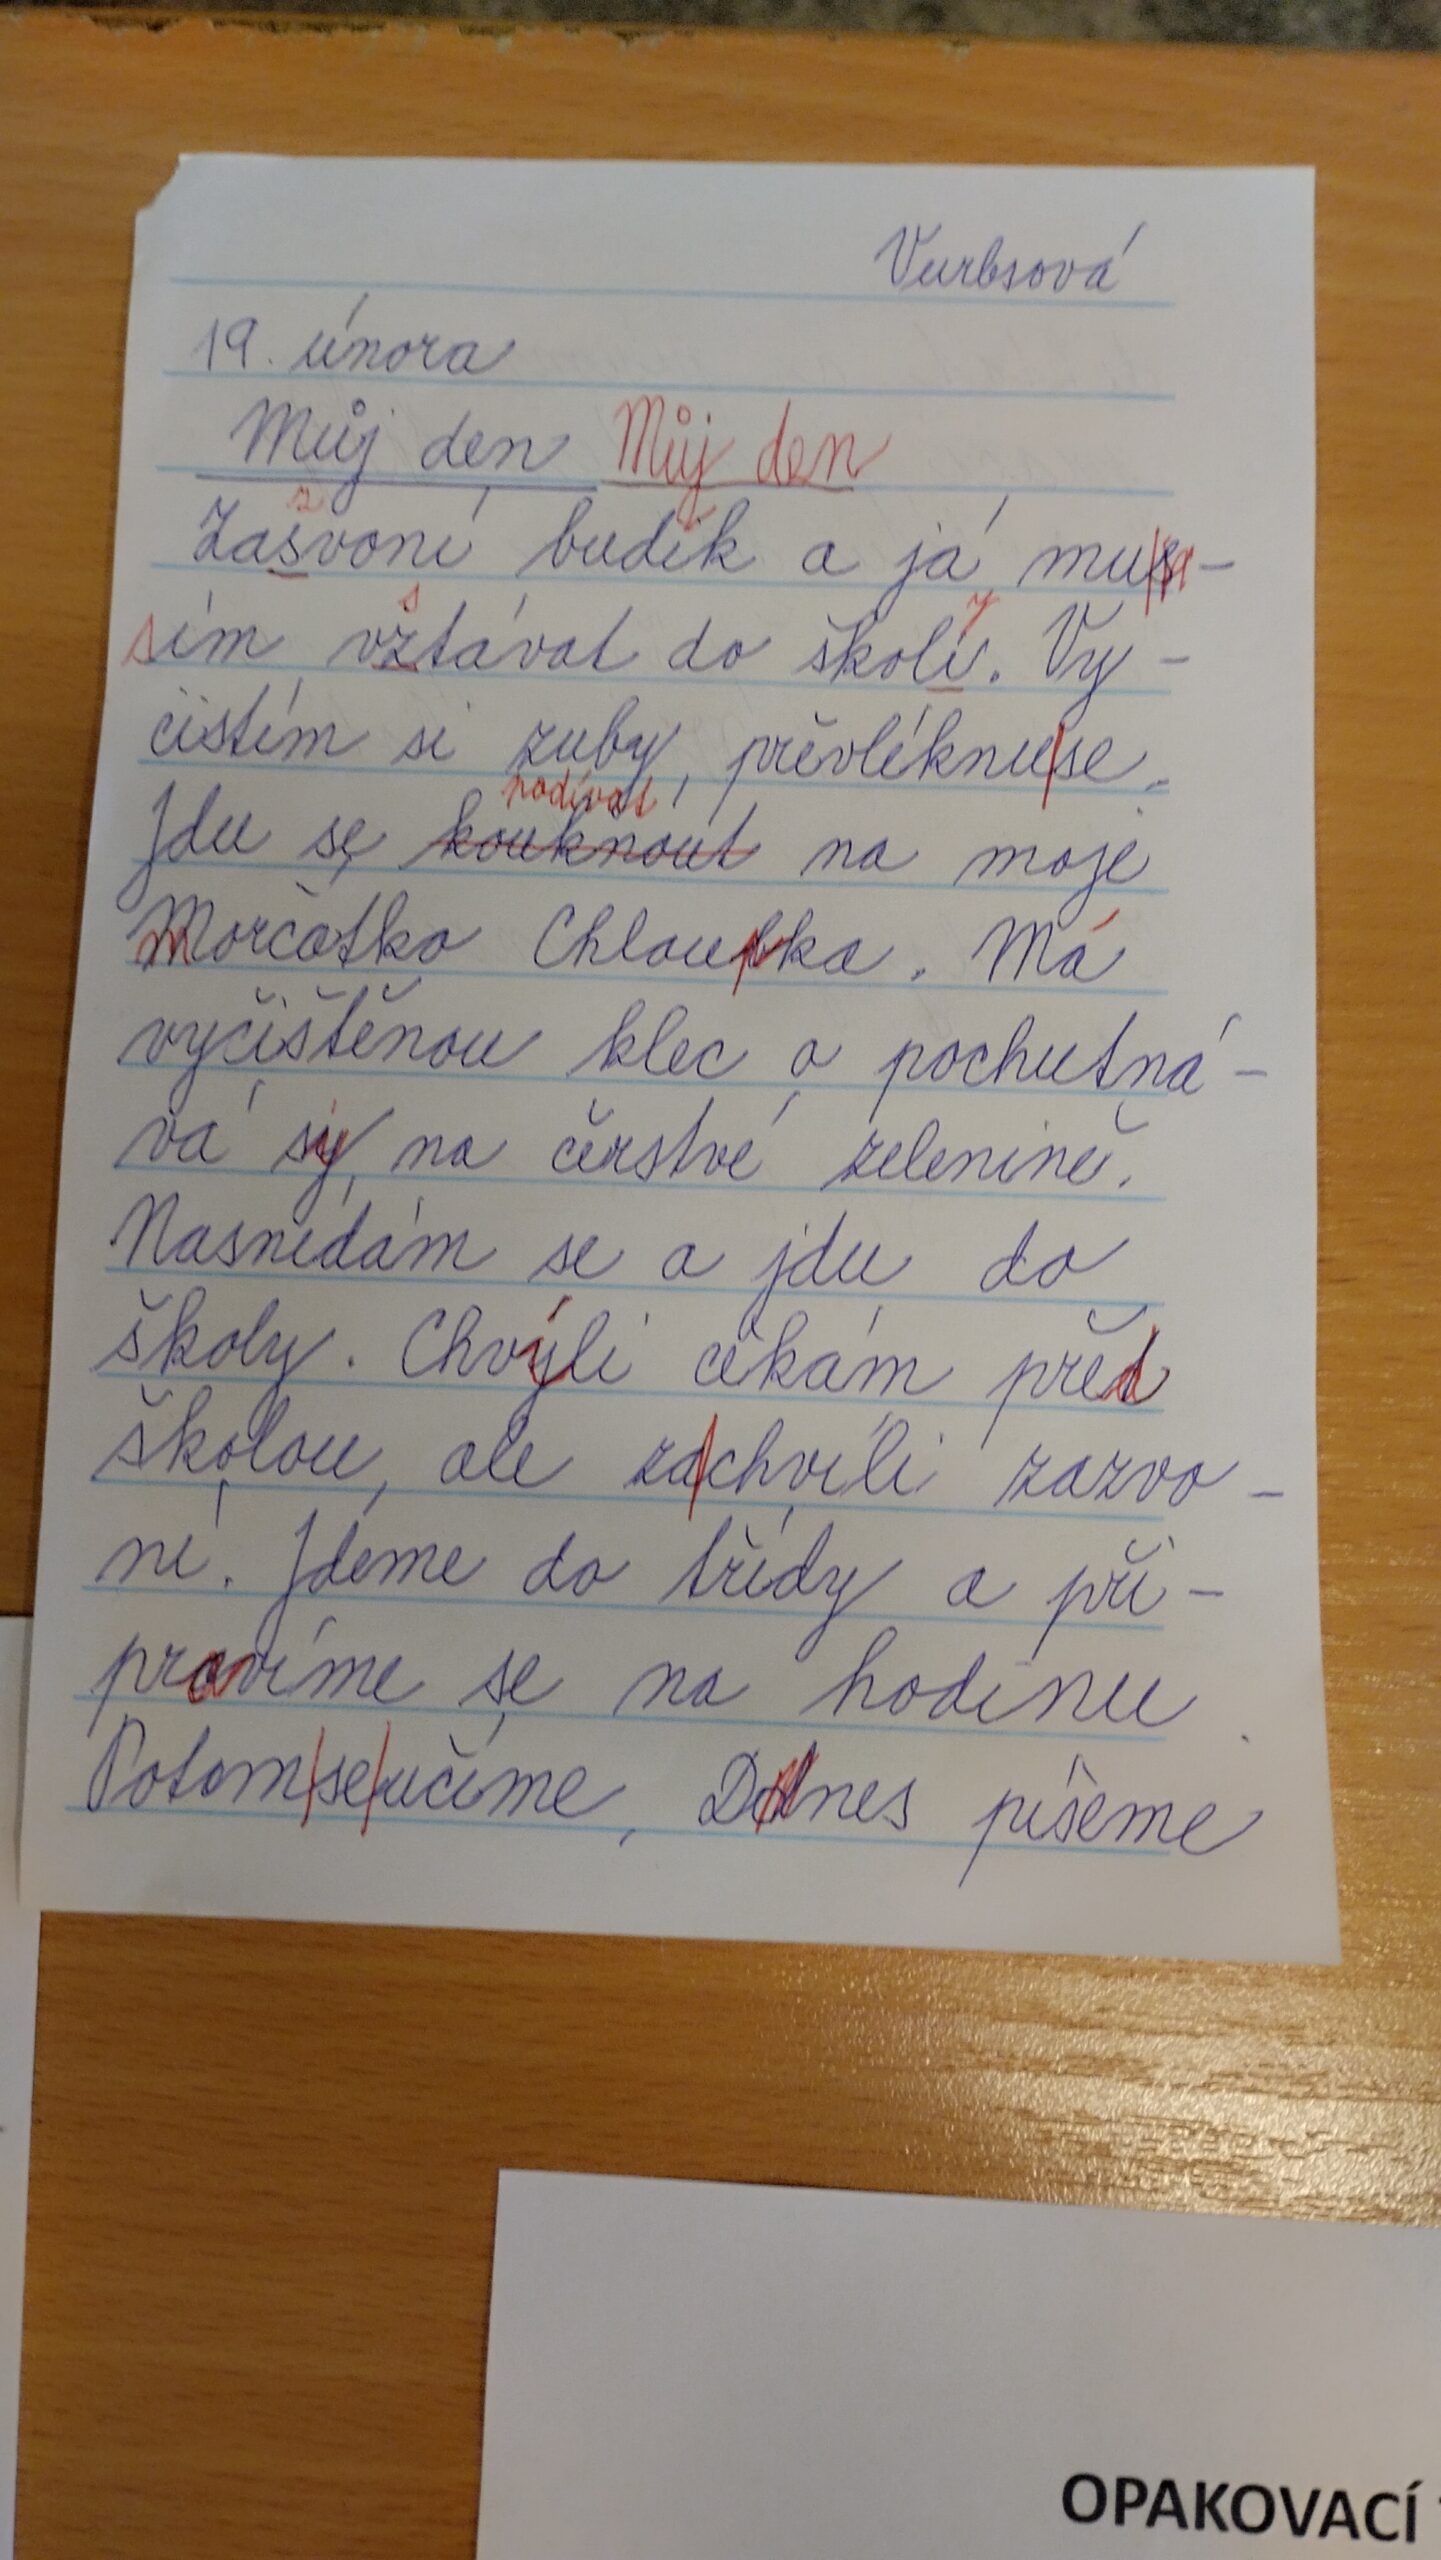 Vurbsová
19. února
Můj den Můj den
z
Zasvoní budík a já mus-
s y
sím vztávat do školi. Vy-
čistím si zuby, převléknu|se.
podívat
Jdu se kouknout na moje
morčátko Chloupka. Má
vyčištěnou klec a pochutná-
vá si na čerstvé zelenině.
Nasnídám se a jdu do
školy. Chvíli čekám před
školou, ale za|chvíli zazvo-
ní. Jdeme do třídy a při-
pravíme se na hodinu.
Potom|se|učíme, Dnes píšeme
OPAKOVACÍ